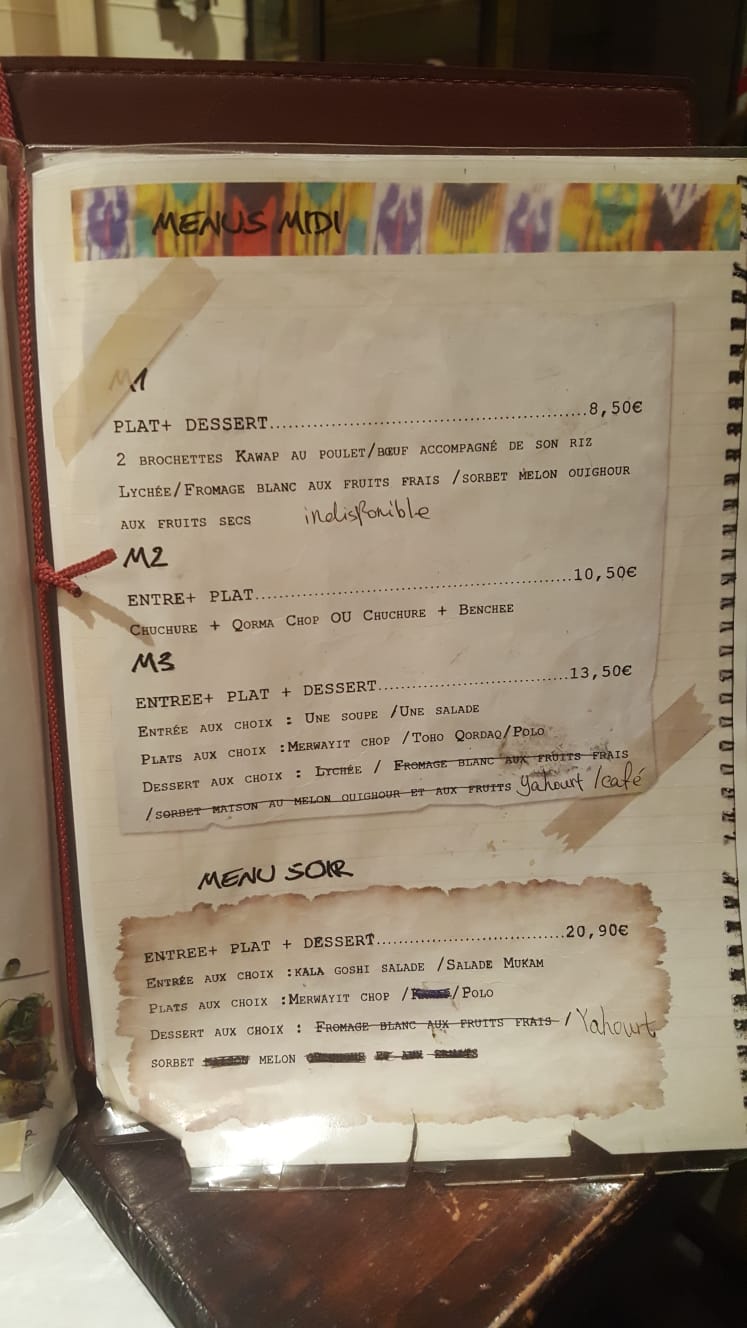 MENUS MIDI
M1
PLAT+ DESSERT..............................................8,50€
2 BROCHETTES KAWAP AU POULET/BŒUF ACCOMPAGNÉ DE SON RIZ
LYCHÉE/FROMAGE BLANC AUX FRUITS FRAIS /SORBET MELON OUIGHOUR
AUX FRUITS SECS indisponible
M2
ENTRE+ PLAT..............................................10,50€
CHUCHURE + QORMA CHOP OU CHUCHURE + BENCHEE
M3
ENTREE+ PLAT + DESSERT...........................13,50€
ENTRÉE AUX CHOIX : UNE SOUPE /UNE SALADE
PLATS AUX CHOIX :MERWAYIT CHOP /TOHO QORDAQ/POLO
DESSERT AUX CHOIX : LYCHÉE / FROMAGE BLANC AUX FRUITS FRAIS
/SORBET MAISON AU MELON OUIGHOUR ET AUX FRUITS Yahourt /café
MENU SOIR
ENTREE+ PLAT + DESSERT...........................20,90€
ENTRÉE AUX CHOIX :KALA GOSHI SALADE /SALADE MUKAM
PLATS AUX CHOIX :MERWAYIT CHOP / /POLO
DESSERT AUX CHOIX : FROMAGE BLANC AUX FRUITS FRAIS / Yahourt
SORBET MELON